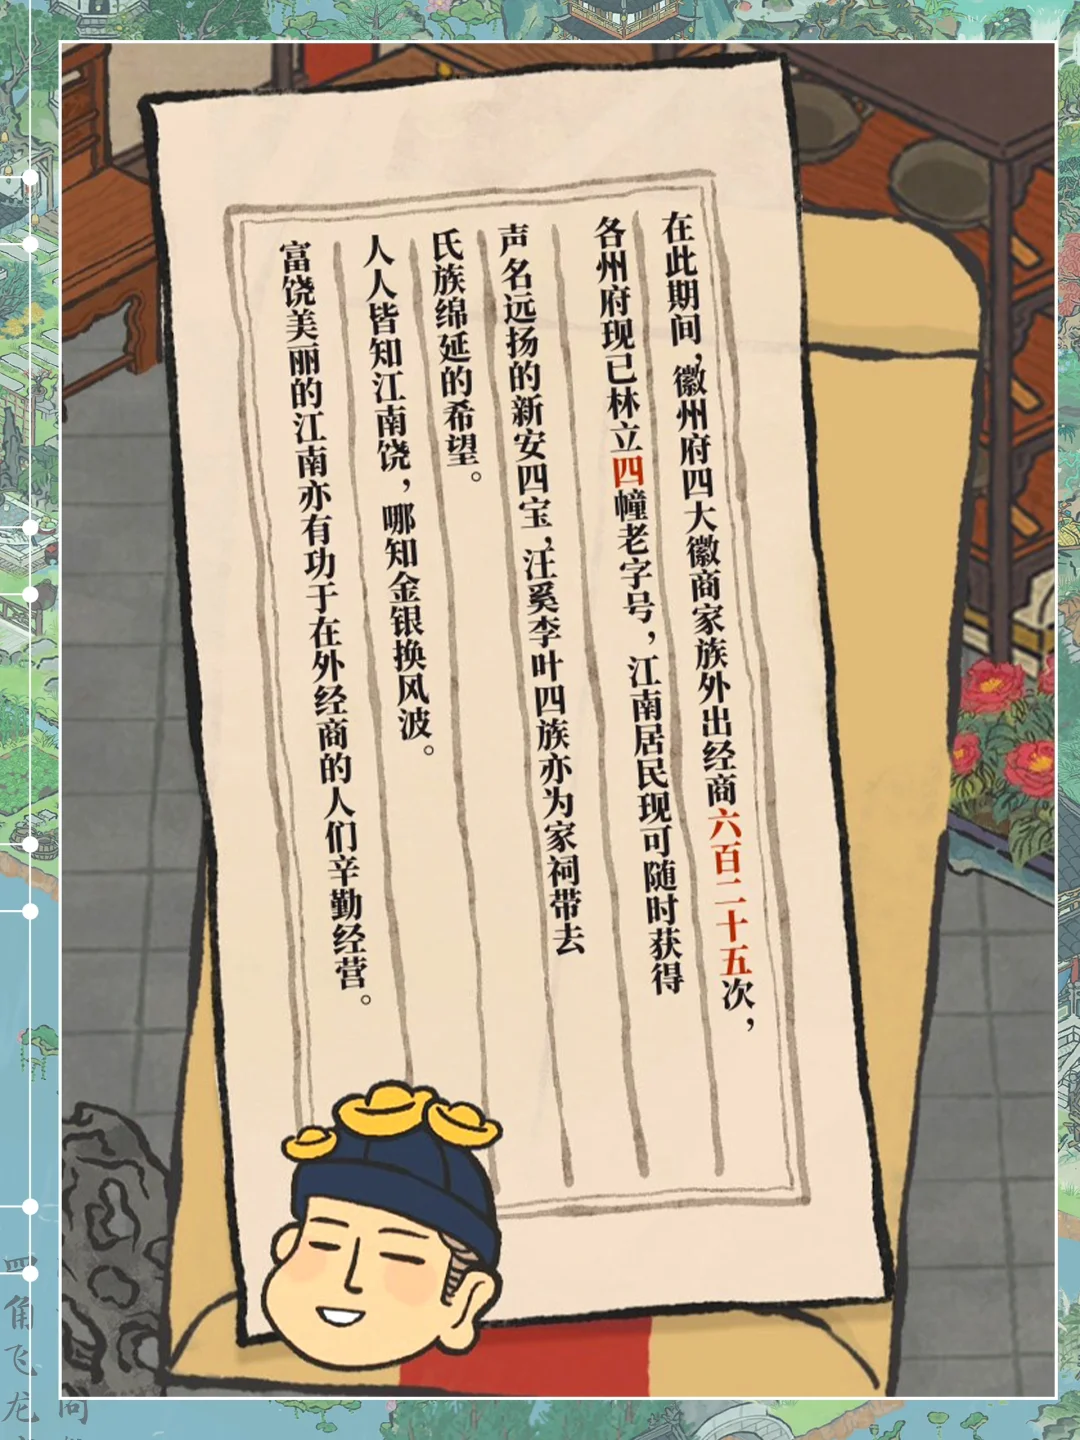 在此期间，徽州府四大徽商家族外出经商六百二十五次，
各州府现已林立四幢老字号，江南居民现可随时获得
声名远扬的新安四宝，汪奚李叶四族亦为家祠带去
氏族绵延的希望。
人人皆知江南饶，哪知金银换风波。
富饶美丽的江南亦有功于在外经商的人们辛勤经营。
四角飞龙